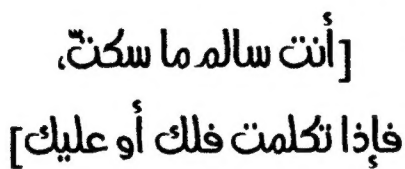 [أنت سالم ما سكتّ،
فإذا تكلمت فلك أو عليك]